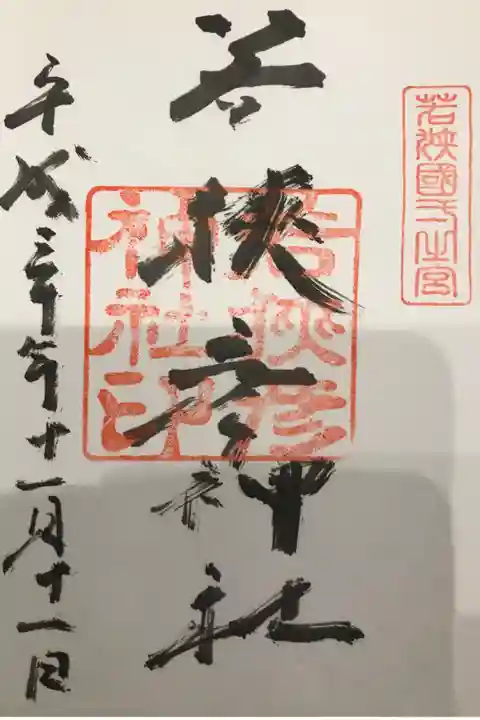 若狭國一之宮
若狭彦神社
若狭彦
神社印
平成三十年十一月十一日